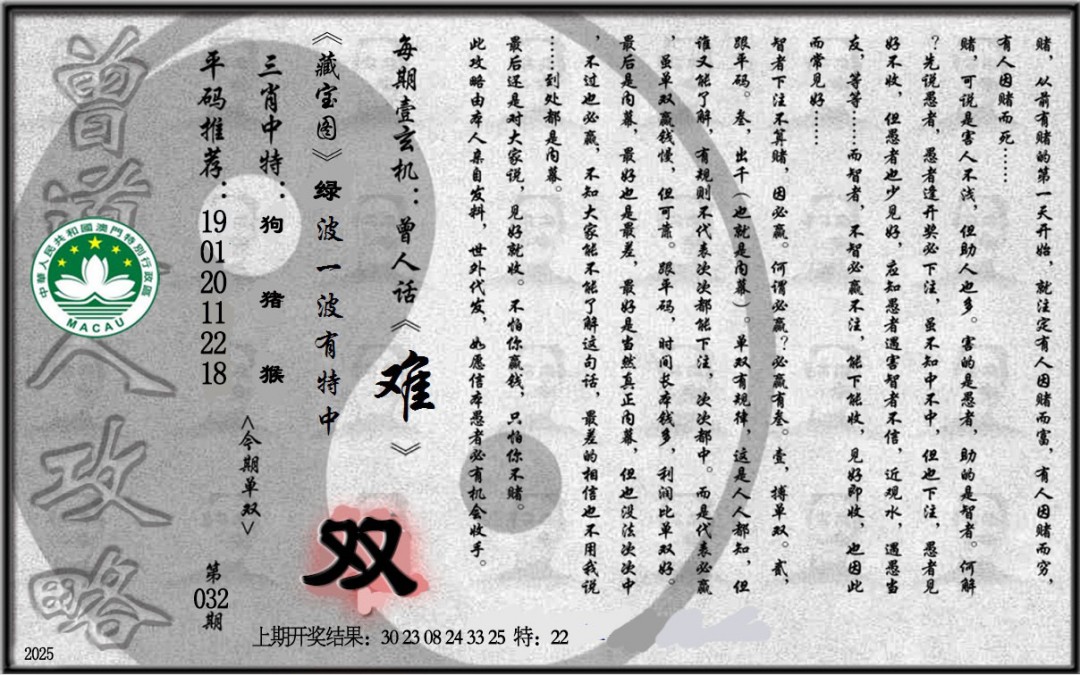 赌，从前有赌的第一天开始，就注定有人因赌而富，有人因赌而穷，
有人因赌而死……
赌，可说是害人不浅，但助人也多。害的是愚者，助的是智者。何解
？先说愚者，愚者逢开奖必下注，虽不知中不中，但也下注，愚者见
好不收，但愚者也少见好，应知愚者遇害智者不信，近观水，遇愚当
友，等等……而智者，不智必赢不注，能下能收，见好即收，也因此
而常见好……
智者下注不算赌，因必赢。何谓必赢？必赢有叁。壹，搏单双。贰，
跟平码。叁，出千（也就是内幕）。单双有规律，这是人人都知，但
谁又能了解，有规则不代表次次都能下注，次次都中。而是代表必赢
，虽单双赢钱慢，但可靠。跟平码，时间长本钱多，利润比单双好。
最后是内幕，最好也是最差，最好是当然真正内幕，但也没法次次中
，不过也必赢，不知大家能不能了解这句话，最差的相信也不用我说
……到处都是内幕。
最后还是对大家说，见好就收。不怕你赢钱，只怕你不赌。
此攻略由本人亲自发料，世外代发，如愿信本愚者必有机会收手。
每期壹玄机：曾人话《难》
《藏宝图》绿波一波有特中
双
三肖中特：狗 猪 猴
<今期单双>
平码推荐：19 01 20 11 22 18
第032期
曾道人攻略
中華人民共和國澳門特別行政區
MACAU
上期开奖结果：30 23 08 24 33 25 特：22
2025